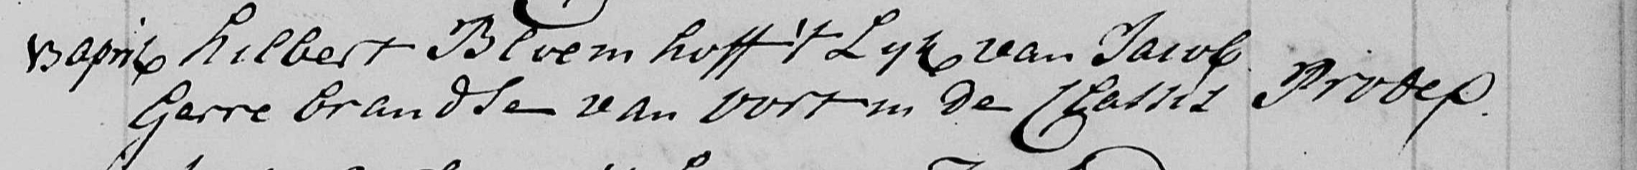 13 april hilbert Bloemhoff 't Lyk van Jacob
Gerrebrandse van voort in de Classis Prodep.